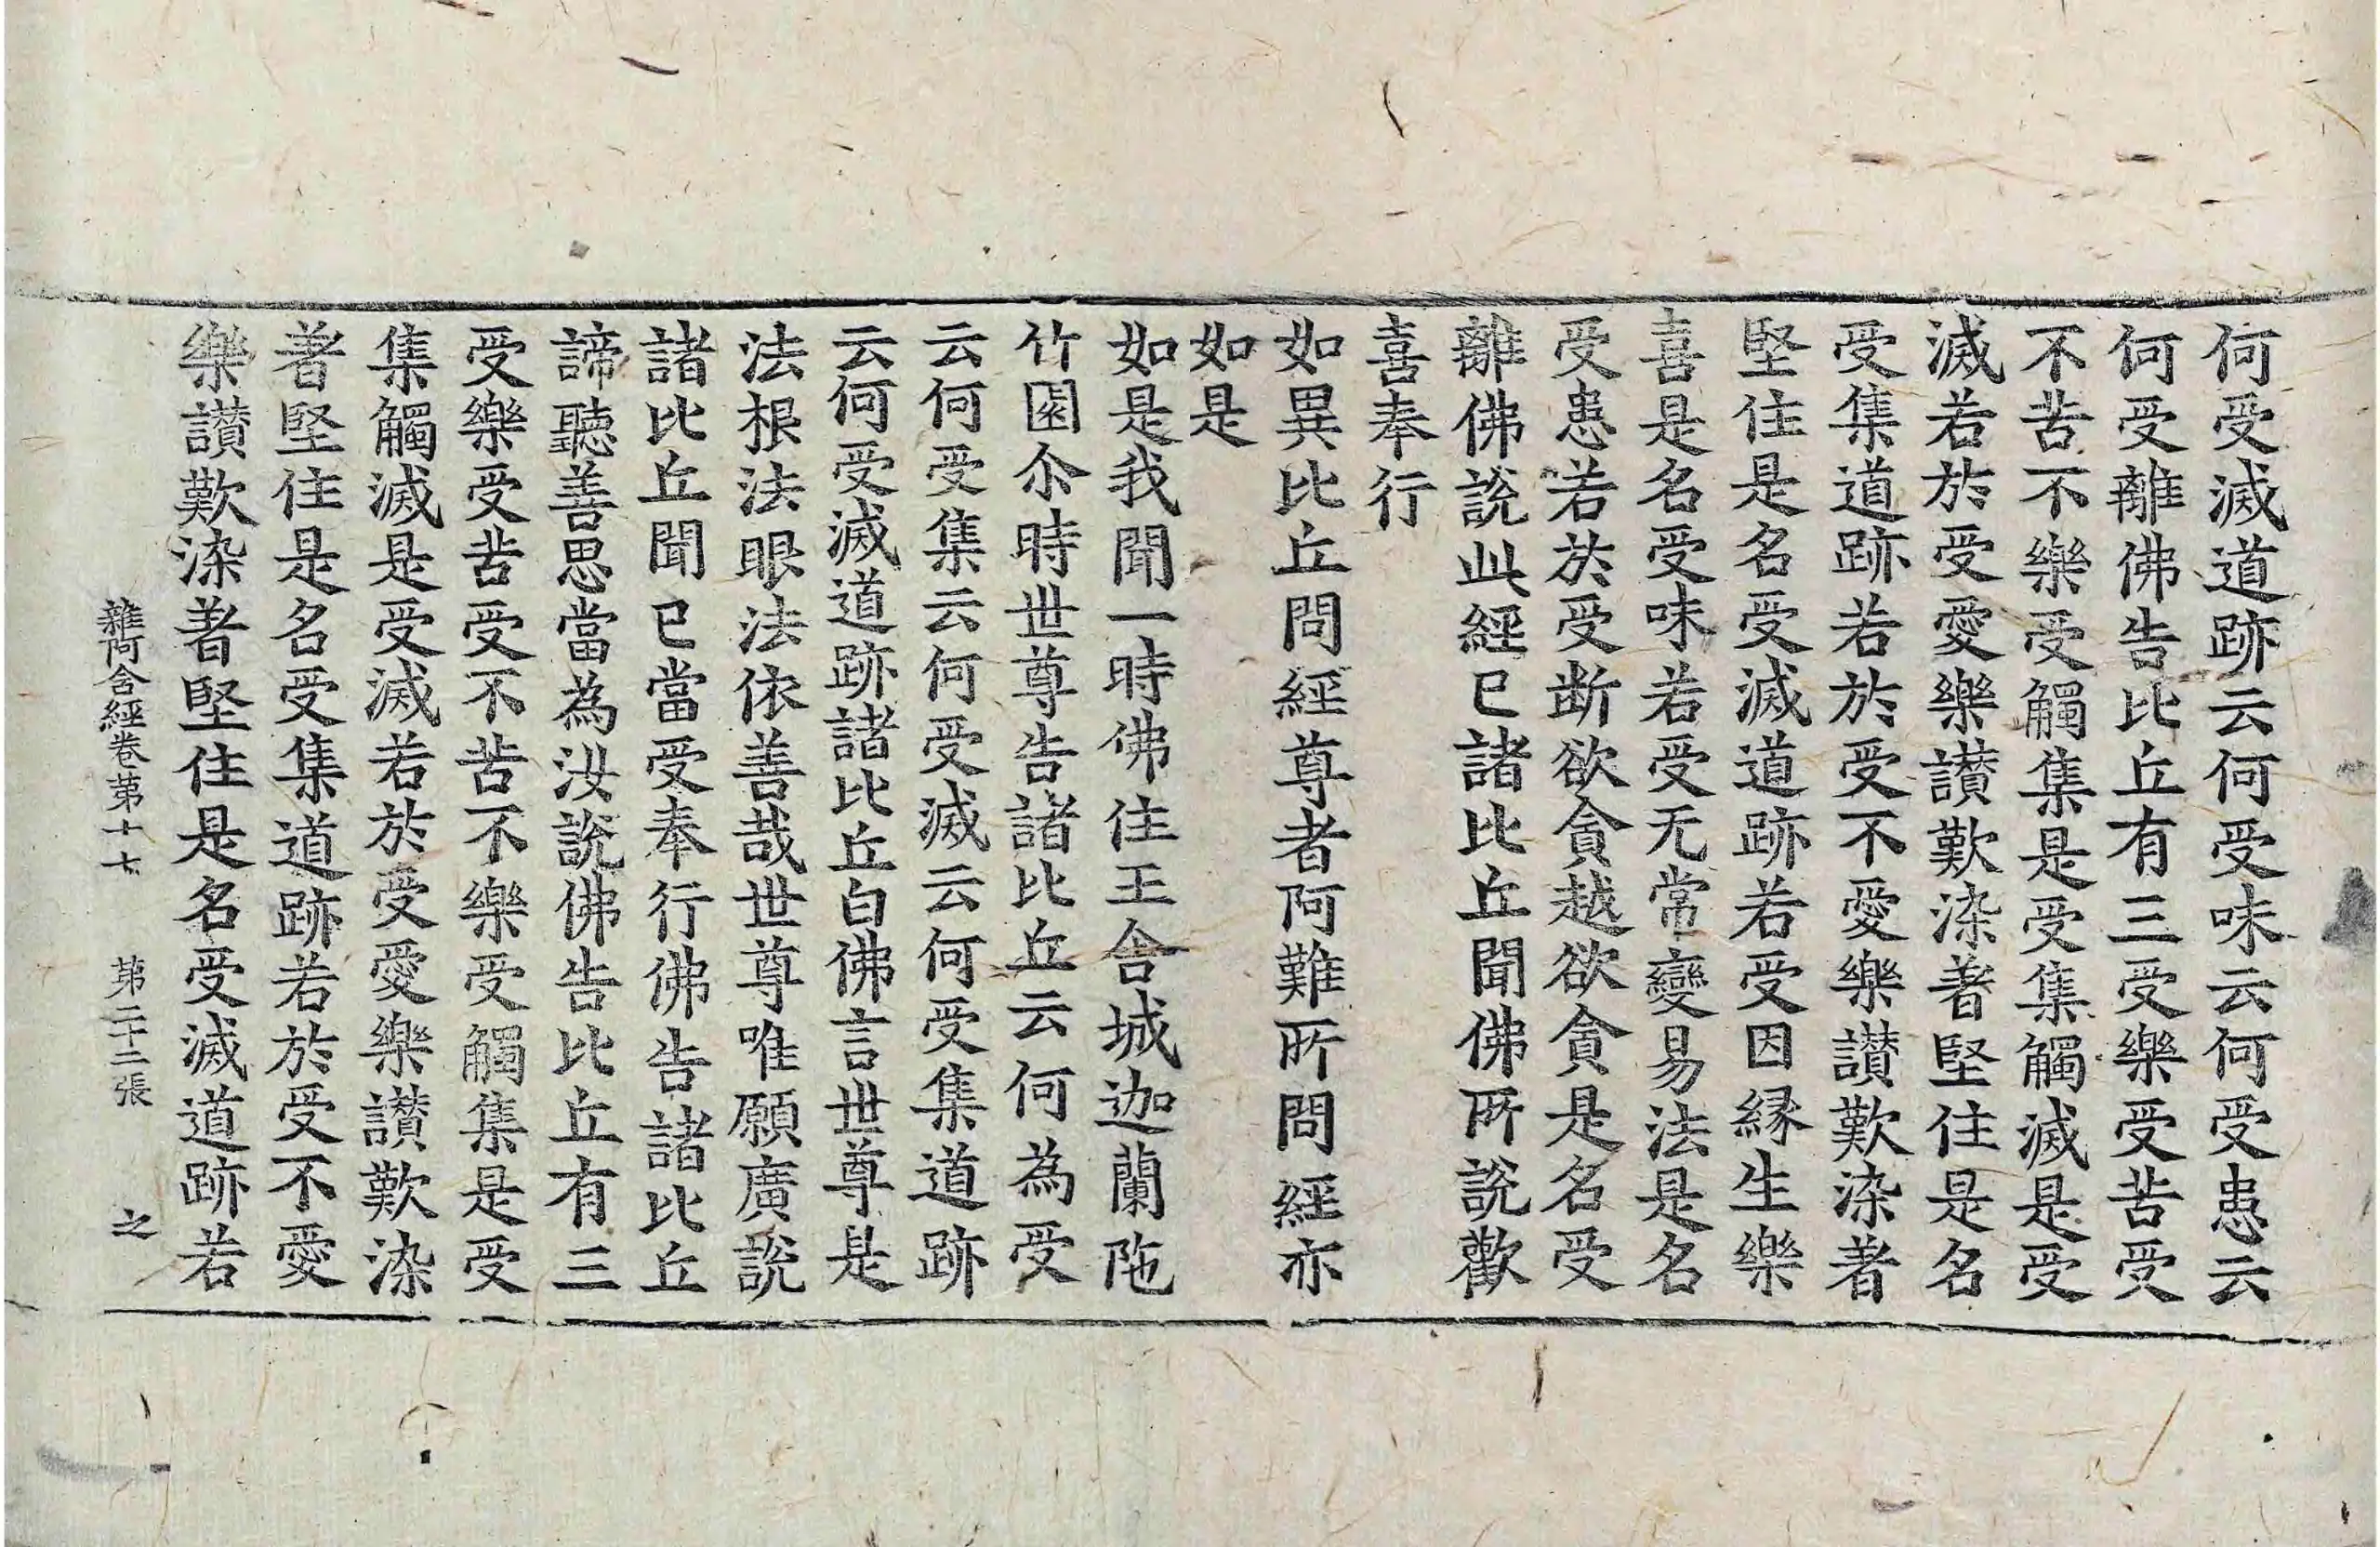 何受滅道跡云何受味云何受患云
何受離佛告比丘有三受樂受苦受
不苦不樂受觸集是受集觸滅是受
滅若於受愛樂讃歎染著堅住是名
受集道跡若於受不愛樂讃歎染著
堅住是名受滅道跡若受因緣生樂
喜是名受味若受无常變易法是名
受患若於受断欲貪越欲貪是名受
離佛說此經已諸比丘聞佛所說歡
喜奉行
如異比丘問經尊者阿難所問經亦
如是
如是我聞一時佛住王舍城迦蘭陁
竹園尒時世尊告諸比丘云何為受
云何受集云何受滅云何受集道跡
云何受滅道跡諸比丘白佛言世尊是
法根法眼法依善哉世尊唯願廣說
諸比丘聞已當受奉行佛告諸比丘
諦聽善思當為汝說佛告比丘有三
受樂受苦受不苦不樂受觸集是受
集觸滅是受滅若於受愛樂讃歎染
著堅住是名受集道跡若於受不愛
樂讃歎染著堅住是名受滅道跡若
雜阿含經卷苐十七 苐二十二張 之